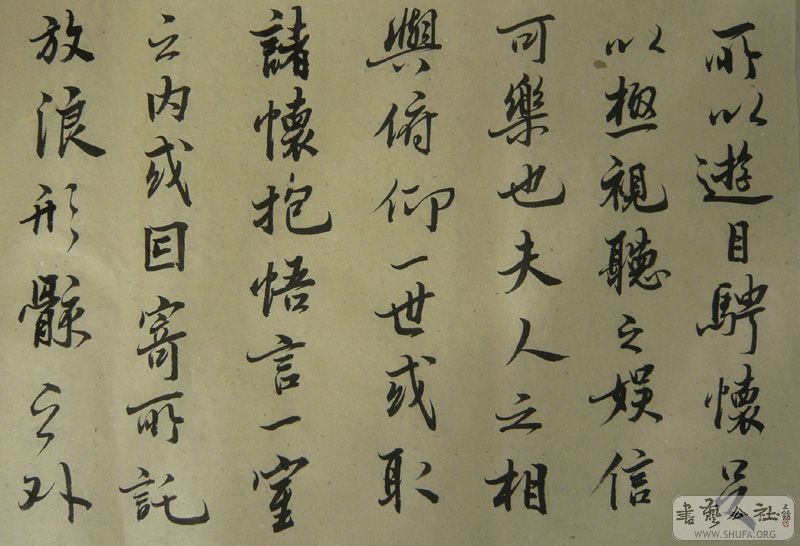 所以遊目騁懷足
以極視聽之娛信
可樂也夫人之相
與俯仰一世或取
諸懷抱悟言一室
之內或因寄所託
放浪形骸之外
書藝公社
WWW.SHUFA.ORG